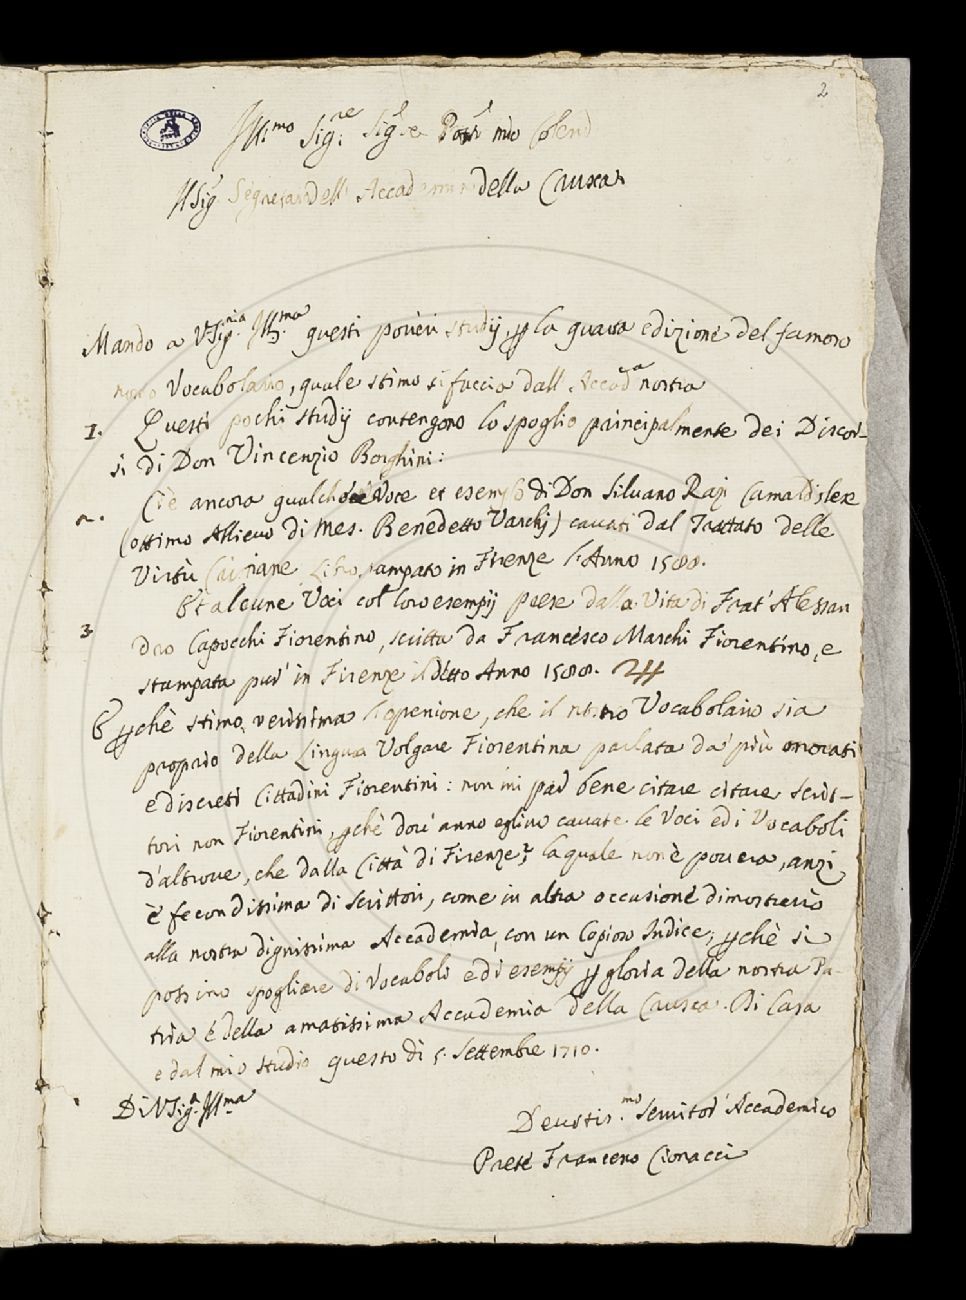 2
Ill.mo Sig.re Sig.re Pat.n mio Colend
Il Sig. Segretar dell' Accademia della Crusca
Mando a V.Sig.nia Ill.ma questi poveri studij, p la quarta edizione del famoso
nostro Vocabolario, quale stimo si faccia dall' Accad.a nostra
1. Questi pochi studij contengono lo spoglio principalmente dei Discor-
si di Don Vincenzio Borghini:
2. C'è ancora qualche Voce et esempio di Don Silvano Razi Camaldolese
(ottimo Allievo di Mes. Benedetto Varchj) cavati dal Trattato delle
Virtù Cristiane Libro stampato in Firenze l'Anno 1588.
3. Et alcune Voci col loro esempij prese dalla Vita di Frat' Alessan
dro Capocchi Fiorentino, scritta da Francesco Marchi Fiorentino, e
stampata pur' in Firenze il detto Anno 1588.
E pchè stimo verissima l'openione, che il nostro Vocabolario sia
proprio della Lingua Volgare Fiorentina parlata da' più onorati
e discreti Cittadini Fiorentini: non mi par bene citare citare scrit-
tori non Fiorentini, pchè dov' anno eglino cavate le Voci ed i Vocaboli
d'altrove, che dalla Città di Firenze? la quale non è povera, anzi
è fecondissima di scrittori, come in altra occasione dimostrerò
alla nostra dignissima Accademia, con un Copioso Indice; pchè si
possino spogliare di Vocaboli e di esempij p gloria della nostra Pa-
tria e della amatissima Accademia della Crusca. Di Casa
e dal mio studio questo dì 5. Settembre 1710.
Di V.Sig.a Ill.ma
Devotis.mo Servitor' Accademico
Prete Francesco Cionacci